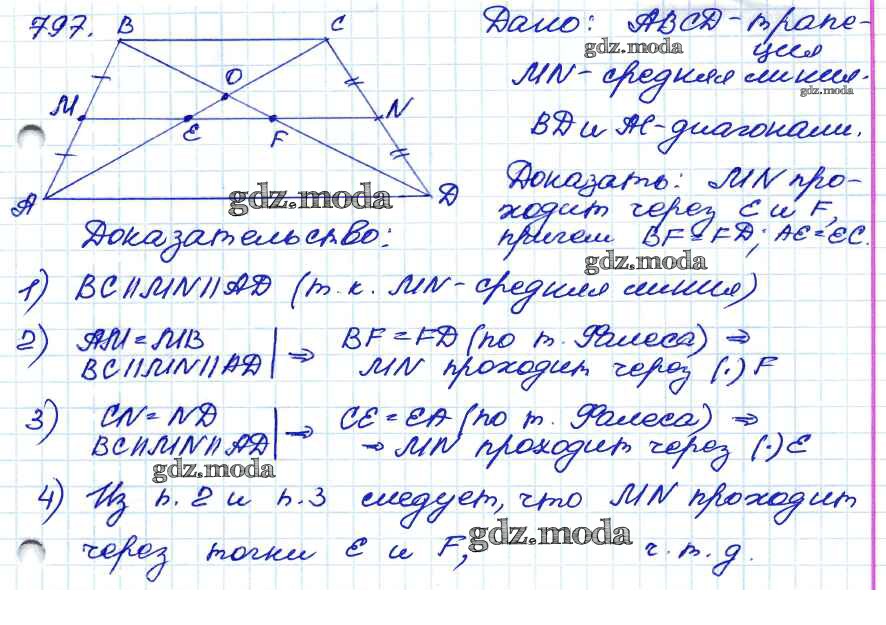 797.
B C
O
M E F N
A D
Дано: ABCD - трапе-
ция
MN - средняя линия.
BD и AC - диагонали.
Доказать: MN про-
ходит через E и F,
причем BF = FD; AE = EC.
Доказательство:
1) BC || MN || AD (т. к. MN - средняя линия)
2) AM = MB
BC || MN || AD | ⇒ BF = FD (по т. Фалеса) ⇒
MN проходит через (·) F
3) CN = ND
BC || MN || AD | ⇒ CE = EA (по т. Фалеса) ⇒
⇒ MN проходит через (·) E
4) Из п. 2 и п. 3 следует, что MN проходит
через точки E и F, ч. т. д.
gdz.moda
gdz.moda
gdz.moda
gdz.moda
gdz.moda
gdz.moda